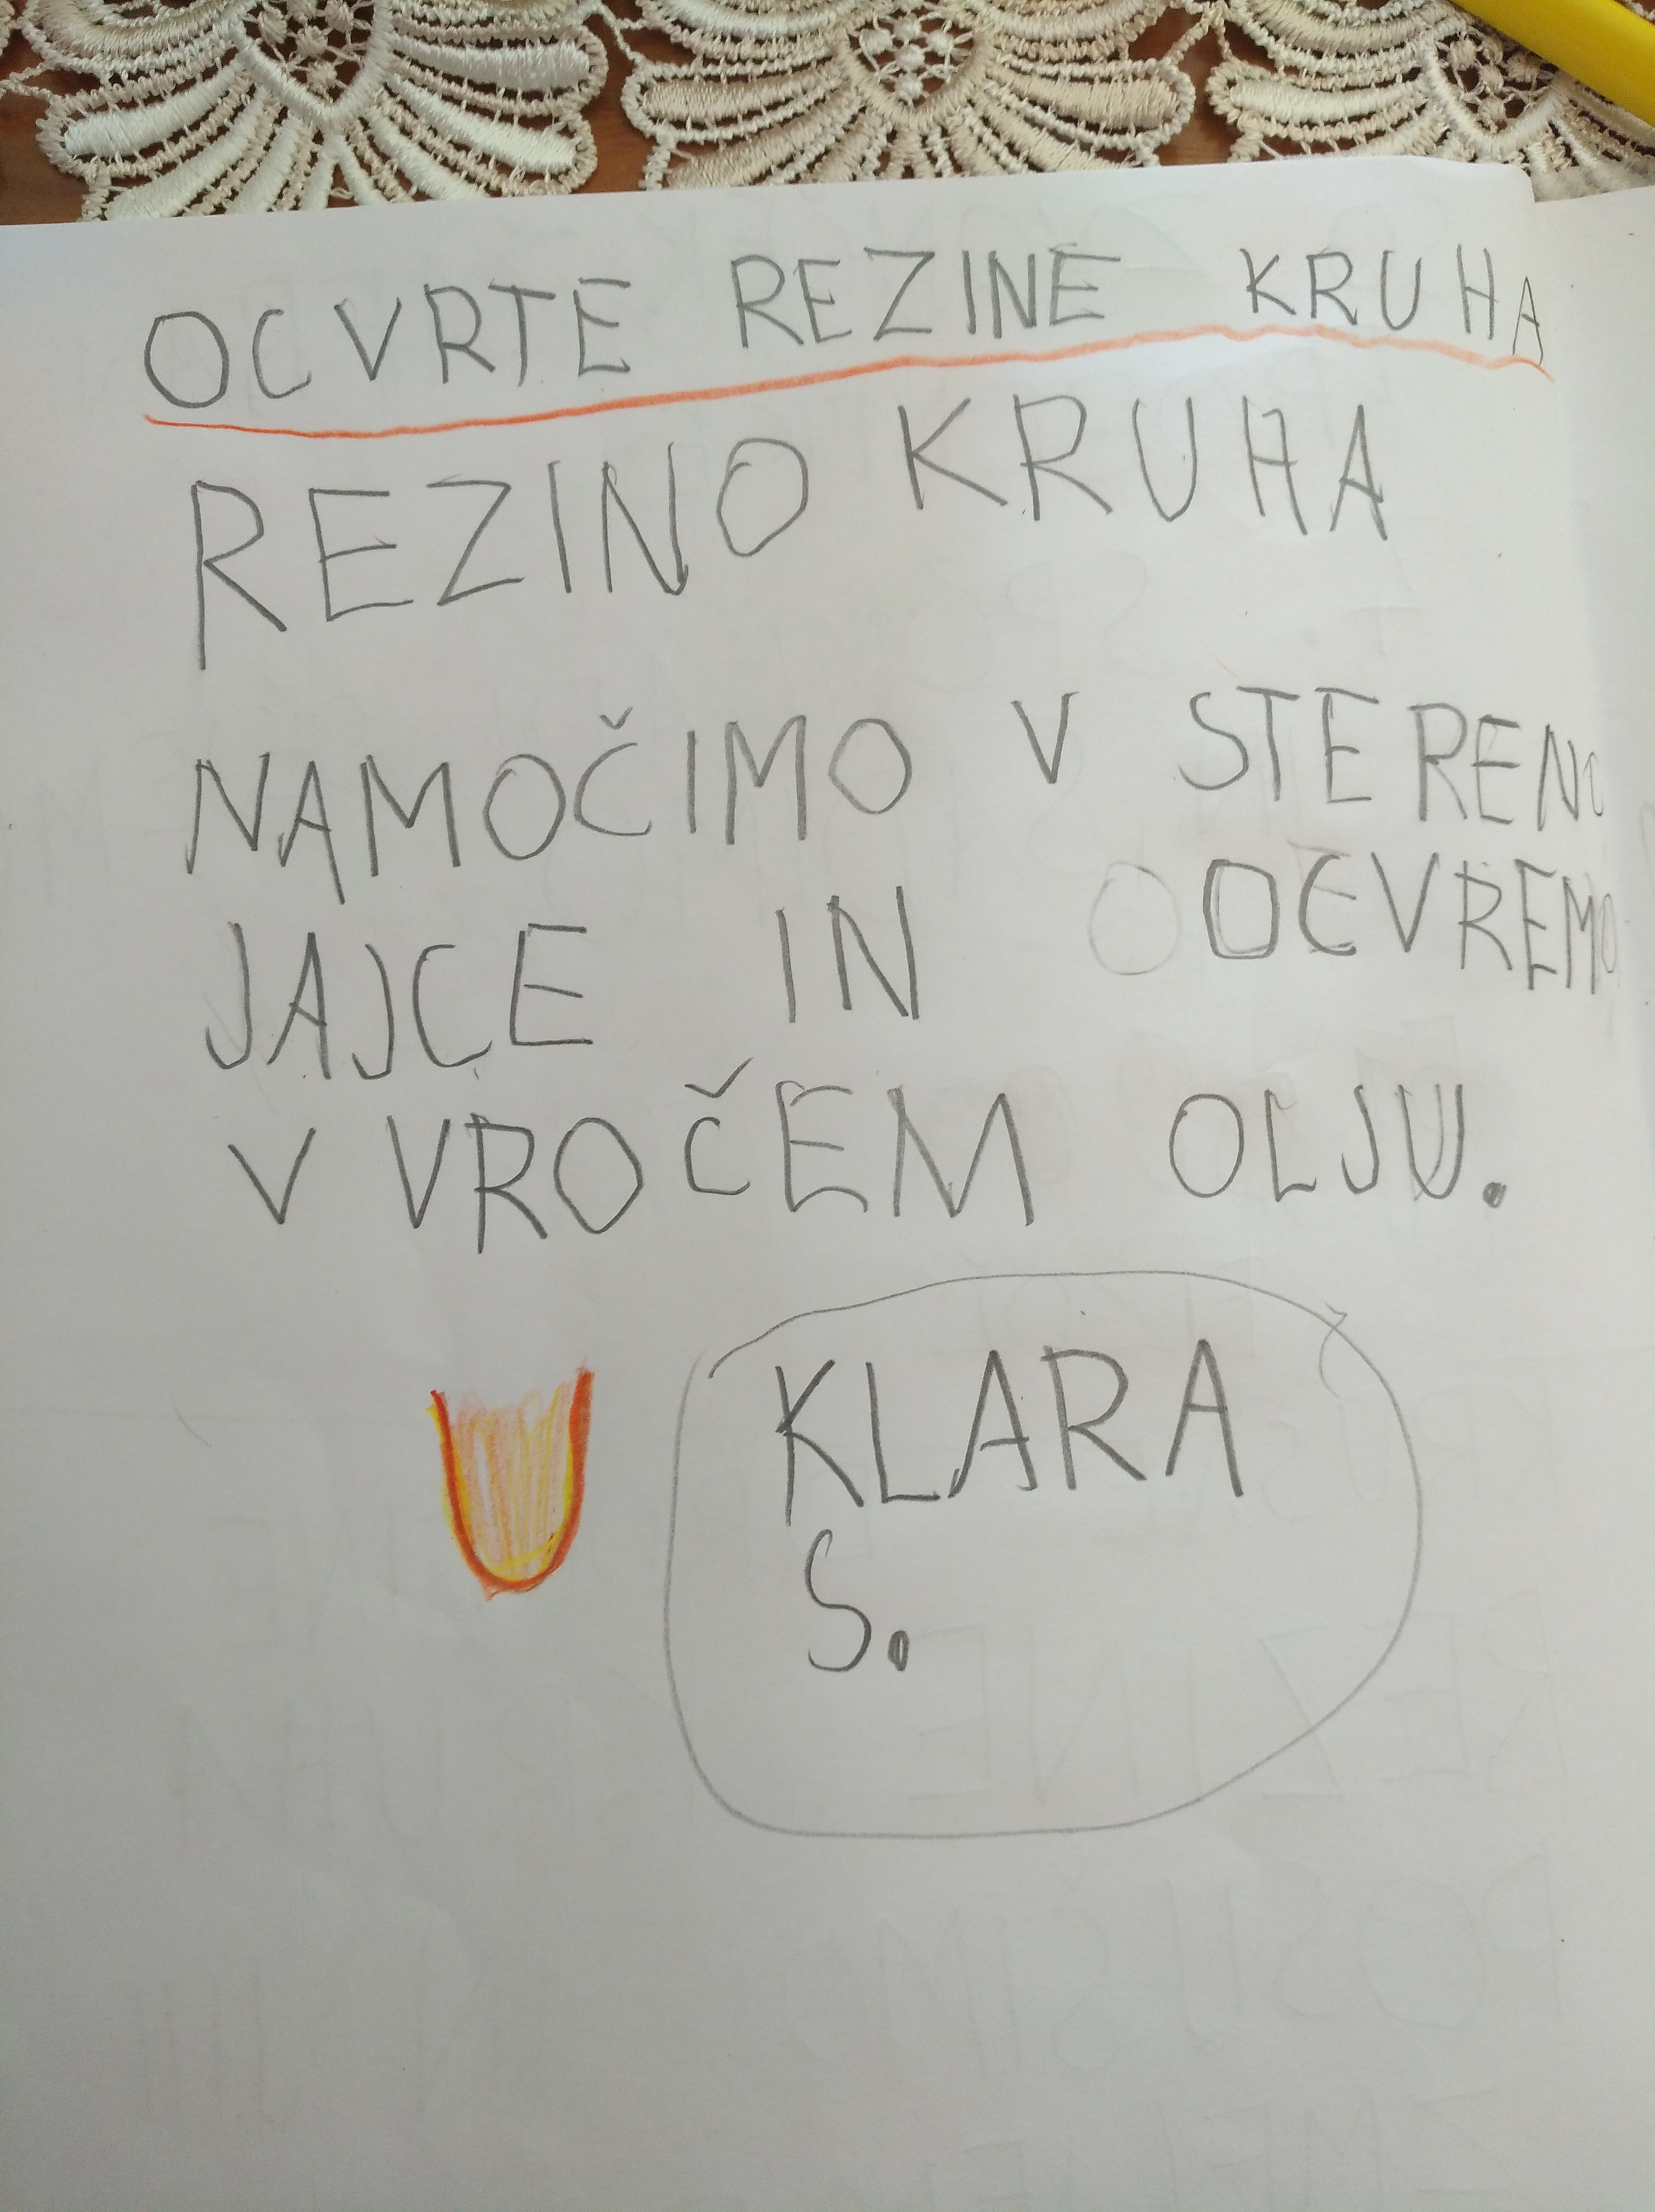 OCVRTE REZINE KRUHA
REZINO KRUHA
NAMOČIMO V STERENO
JAJCE IN OCVREMO
V VROČEM OLJU.
KLARA
S.